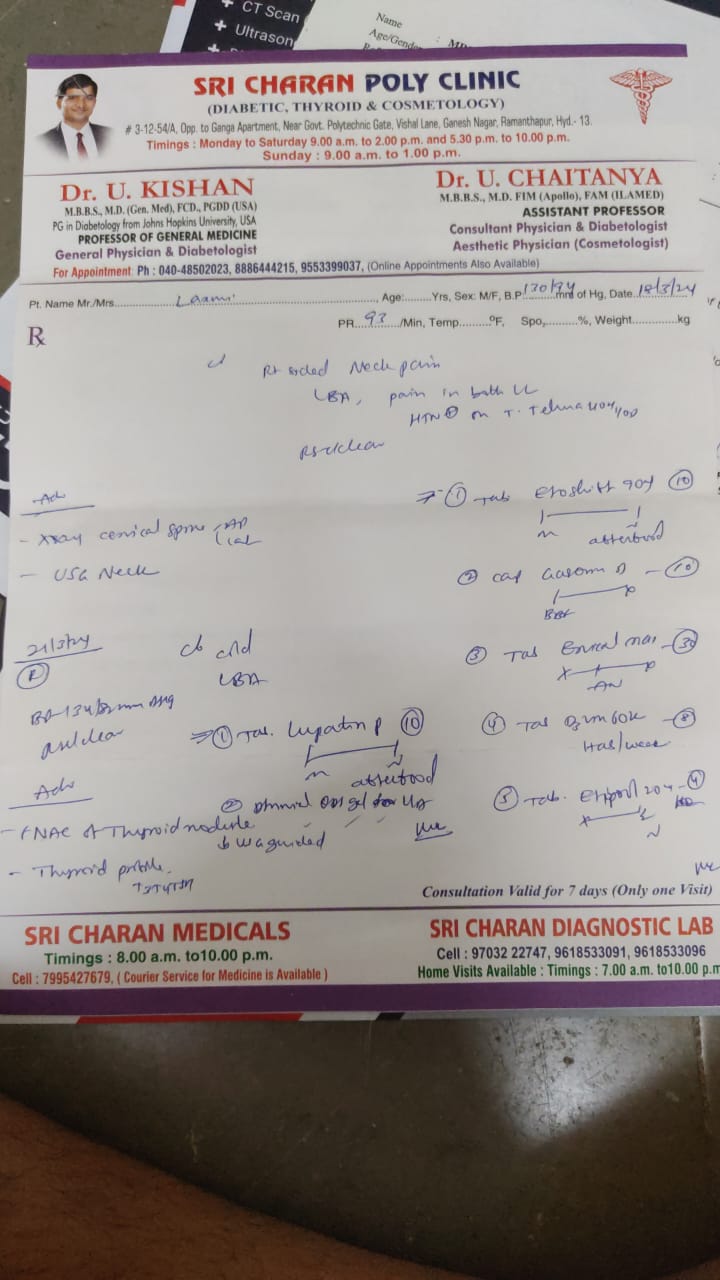 + CT Scan
+ Ultrason
Name
Age/Gender :
SRI CHARAN POLY CLINIC
(DIABETIC, THYROID & COSMETOLOGY)
# 3-12-54/A, Opp. to Ganga Apartment, Near Govt. Polytechnic Gate, Vishal Lane, Ganesh Nagar, Ramanthapur, Hyd.- 13.
Timings : Monday to Saturday 9.00 a.m. to 2.00 p.m. and 5.30 p.m. to 10.00 p.m.
Sunday : 9.00 a.m. to 1.00 p.m.
Dr. U. KISHAN
M.B.B.S., M.D. (Gen. Med), FCD., PGDD (USA)
PG in Diabetology from Johns Hopkins University, USA
PROFESSOR OF GENERAL MEDICINE
General Physician & Diabetologist
Dr. U. CHAITANYA
M.B.B.S., M.D. FIM (Apollo), FAM (ILAMED)
ASSISTANT PROFESSOR
Consultant Physician & Diabetologist
Aesthetic Physician (Cosmetologist)
For Appointment: Ph : 040-48502023, 8886444215, 9553399037, (Online Appointments Also Available)
Pt. Name Mr./Mrs. Laxmi, Age:........Yrs, Sex: M/F, B.P 130/94 mm of Hg, Date 18/3/24
PR....93..../Min, Temp.........ºF, Spo2..........%, Weight.............kg
Rx
Rt sided Neck pain
LBA, pain in both LL
HTN on T. Telma
Adv
- Xray cervical spine AP
Lat
- USG Neck
① Tab 90 ⑩
n afterfood
② cap D - ⑩
BBF
③ Tab - ㉚
AN
④ Tab 60k - ⑧
/week
⑤ Tab. 20 - ④
21/3/24
R
c/o cold
LBA
① Tab. P ⑩
afterfood
② gel for
Adv
- FNAC of Thyroid nodule
guided
- Thyroid profile.
Consultation Valid for 7 days (Only one Visit)
SRI CHARAN MEDICALS
Timings : 8.00 a.m. to10.00 p.m.
Cell : 7995427679, ( Courier Service for Medicine is Available )
SRI CHARAN DIAGNOSTIC LAB
Cell : 97032 22747, 9618533091, 9618533096
Home Visits Available : Timings : 7.00 a.m. to10.00 p.m